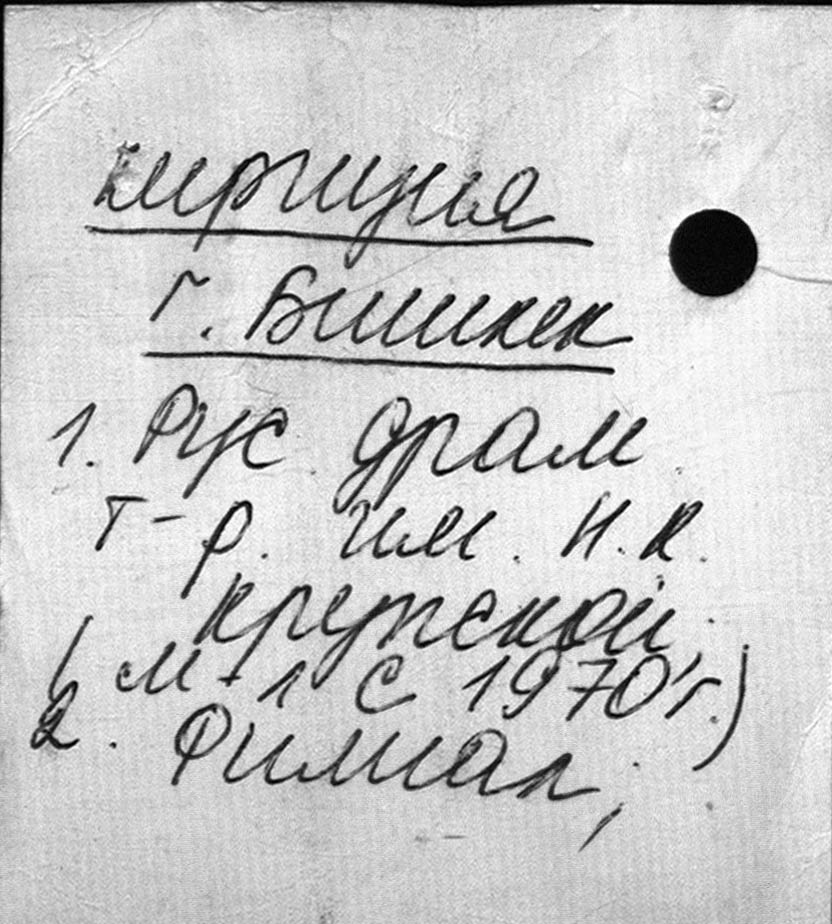 Киргизия
г. Бишкек
1. Рус драм
т-р. им. Н.К.
Крупской
(м-1 с 1970 г.)
2. Филиал;